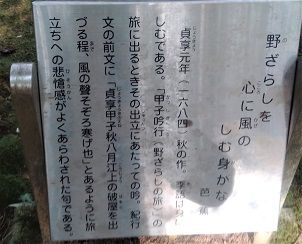 野ざらしを
心に風の
しむ身かな
芭蕉
貞享元年(一六八四)秋の作。季語は身に
しむである。「甲子吟行(野ざらしの旅)」の
旅に出るときその出立にあたっての吟。紀行
文の前文に「貞享甲子秋八月江上の破屋を出
づる程、風の声そぞろ寒げ也」とあるように旅
立ちへの悲愴感がよくあらわされた句である。